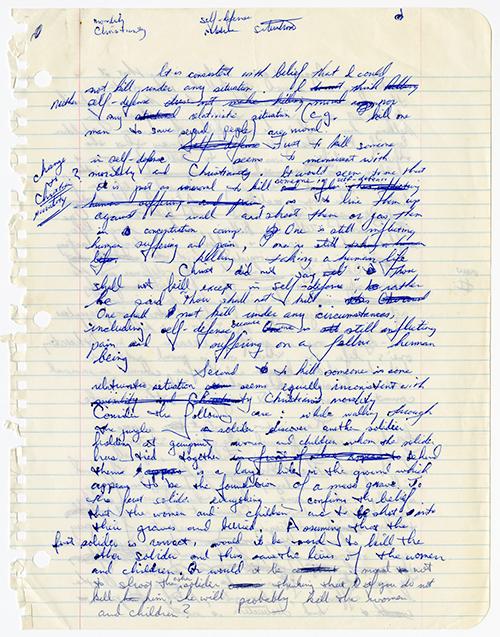 morality self-defense
Christianity situation
It is consistent with belief that I could
not kill under any situation. I think
Neither self-defense nor
any relativistic situation (e.g. kill one
man to save several people) are moral
Just to kill someone
in self-defense seems to inconsistent with
morality and Christianity. It would seem to me that
it is just as immoral to kill someone in self-defense
as to line them up
against a wall and shoot them or gas them
in a concentration camp. One is still inflicting
human suffering and pain, one is still
killing taking a human life
Christ did not say thou
shall not kill except in self-defense rather
he said thou shall not kill
One shall not kill under any circumstances,
including self-defense because still inflicting
pain and suffering on a fellow human
being
Second to kill someone in some
relativistic situation seems equally inconsistent with
Christians morality
Consider the following case: while walking through
the jungle a solider discover another solider
pointing at gunpoint women and children whom the solider
has tied together behind
them is a large hole in the ground which
appears to be the foundation of a mass grave. To
the first solider everything confirms the belief
that the women and children are to be shot into
their graves and burried. Assuming that the
first solider is correct, would it be moral to kill the
other solider and thus save the lives of the women
and children. Or would it be not
to shoot the other solider thinking that if you do not
kill him, he will probably kill the women
and children?
change
for
Christian
morality
?